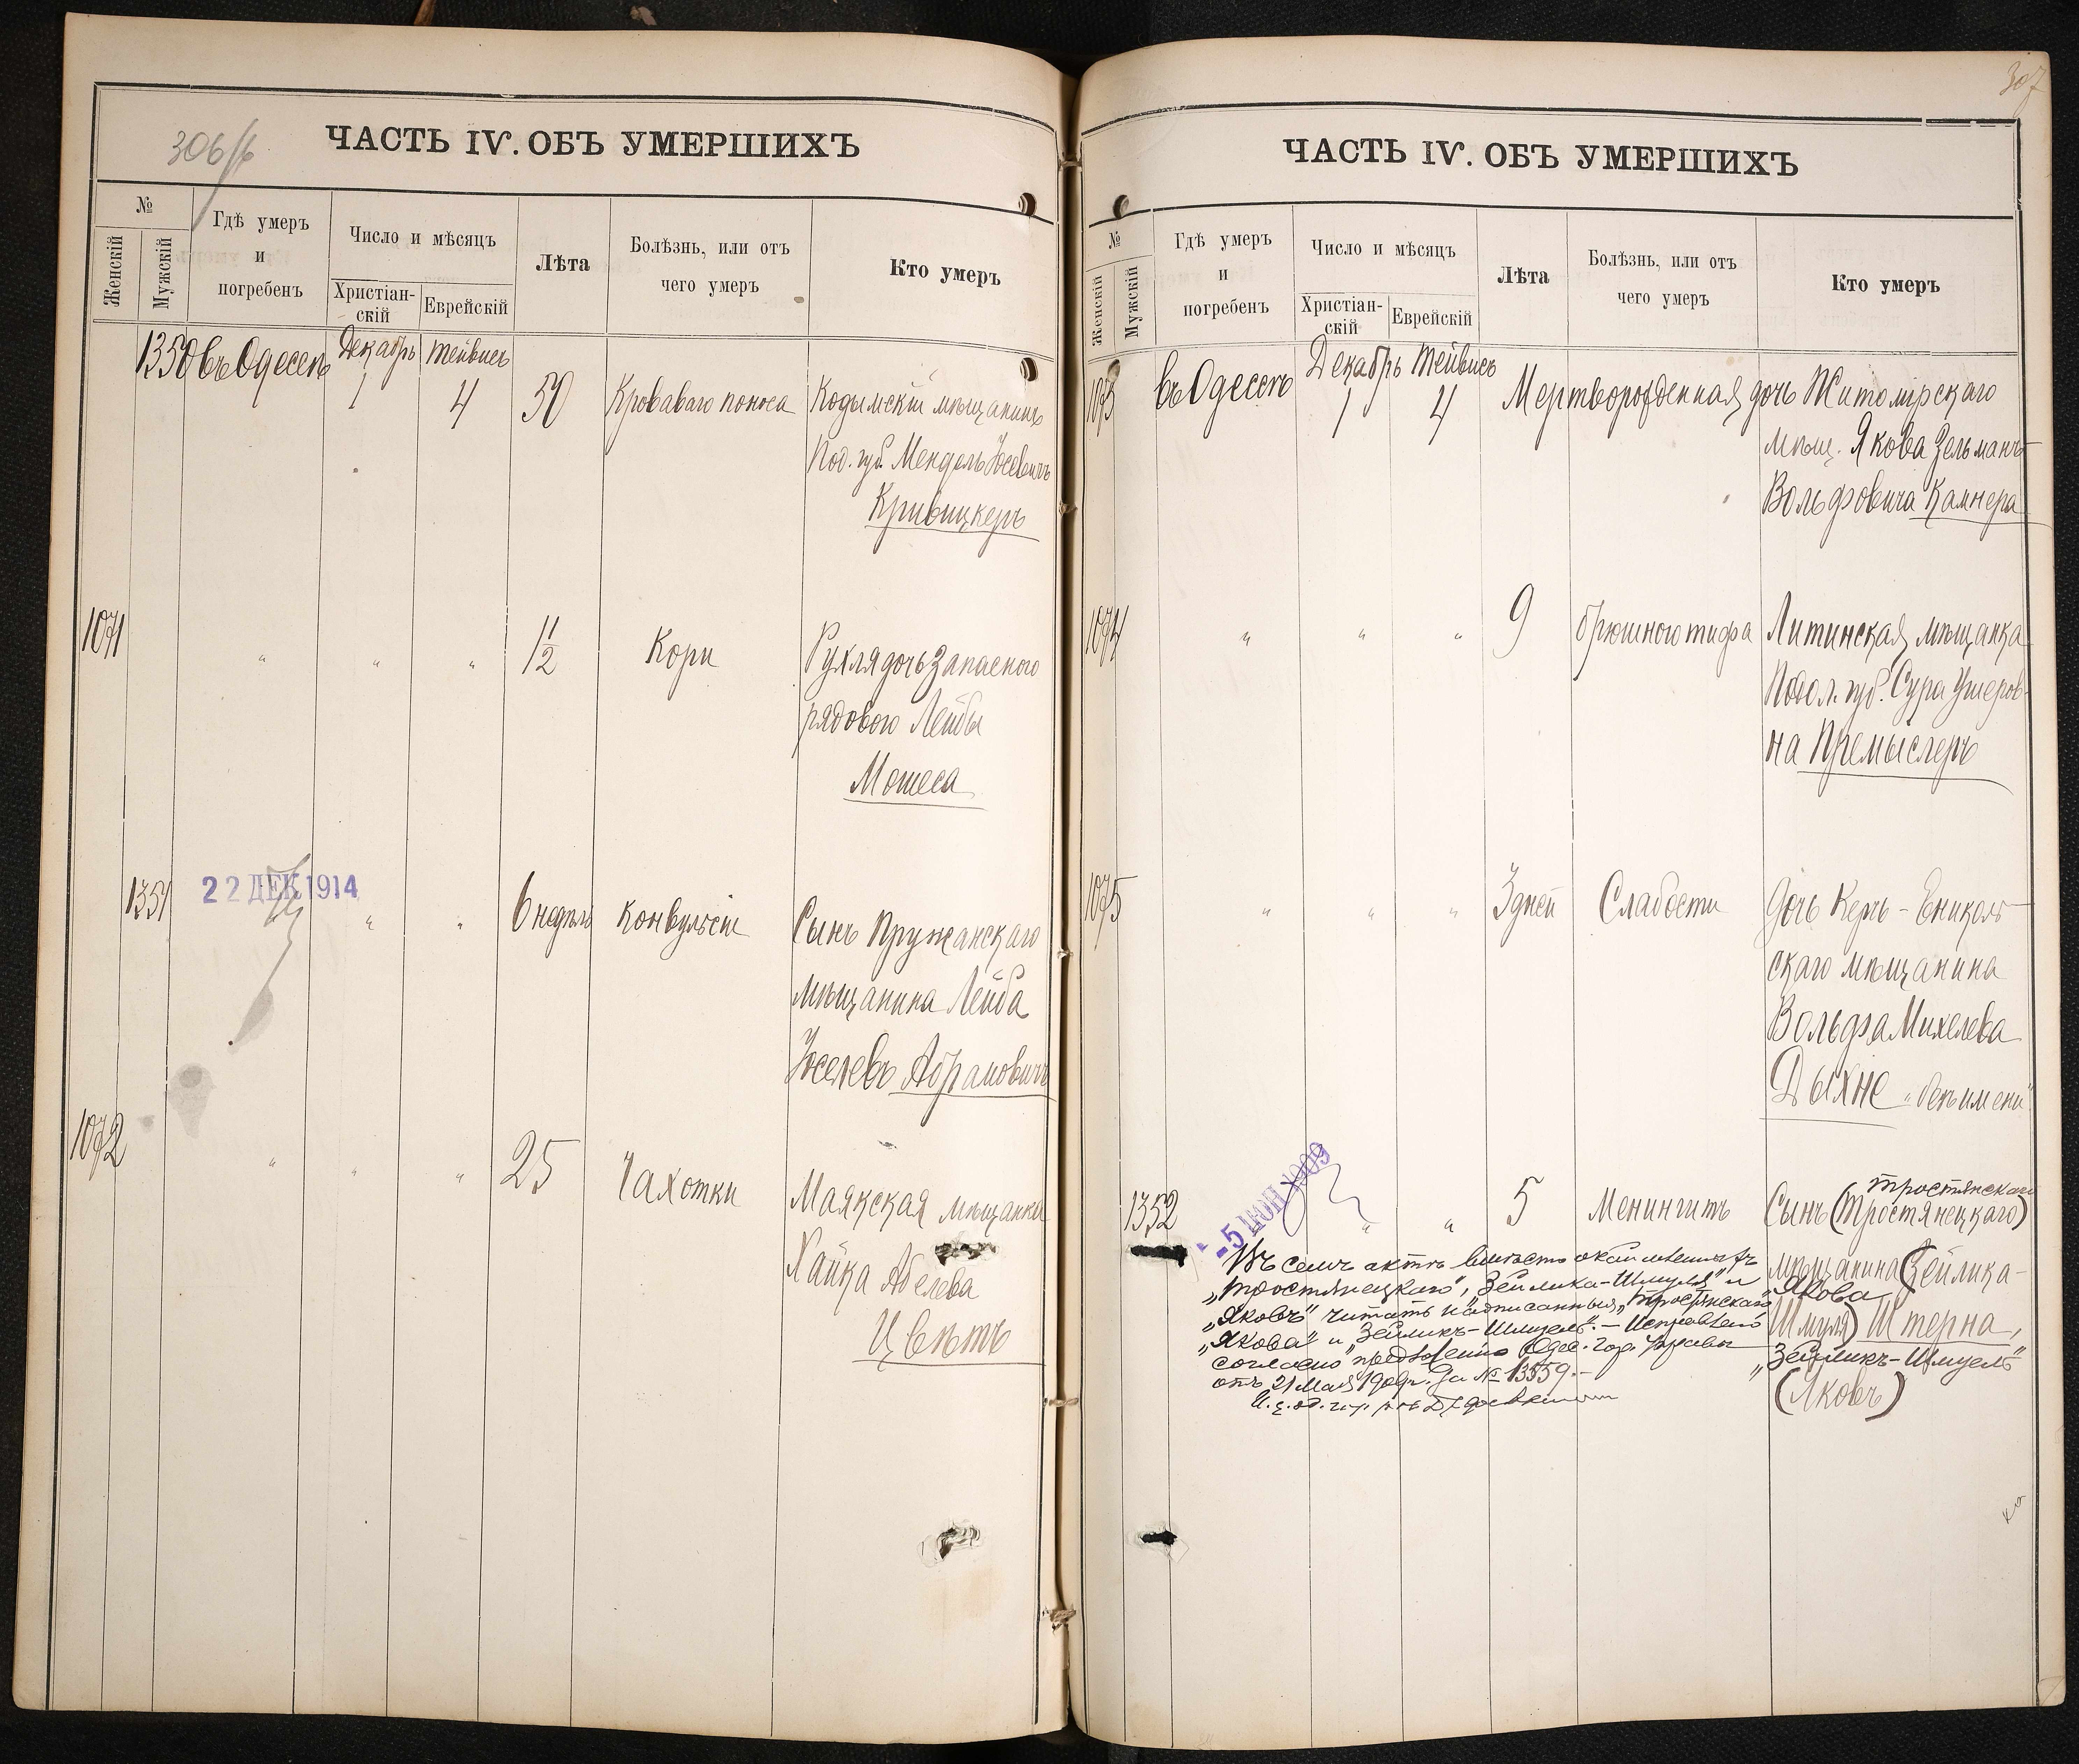 306/б
ЧАСТЬ IV. ОБЪ УМЕРШИХЪ
№
Женскій
Мужскій
Гдѣ умеръ
и
погребенъ
Число и мѣсяцъ
Христіан-
скій
Еврейскій
Лѣта
Болѣзнь, или отъ
чего умеръ
Кто умеръ
1350 въ Одессѣ Декабрь 1 Тейвисъ 4 50 Кроваваго поноса Кодымскій мѣщанинъ
Под. губ. Мендель Іосевичъ
Кривицкеръ
1071 " " " 1 1/2 Кори Рухля дочь запаснаго
рядового Лейбы
Мошеса
1351 " " 6 недѣль Конвульсіи Сынъ Пружанскаго
22 ДЕК 1914
мѣщанина Лейба
Іоселевъ Абрамовичъ
1072 " " " 25 Чахотки Маякская мѣщанка
Хайка Абелева
Цвѣтъ
307
ЧАСТЬ IV. ОБЪ УМЕРШИХЪ
№
Женскій
Мужскій
Гдѣ умеръ
и
погребенъ
Число и мѣсяцъ
Христіан-
скій
Еврейскій
Лѣта
Болѣзнь, или отъ
чего умеръ
Кто умеръ
1073 въ Одессѣ Декабрь 1 Тейвисъ 4 Мертворожденная дочь Житомірскаго
мѣщ. Якова Зельманъ
Вольфовича Камнера
1074 " " " 9 брюшного тифа Литинская мѣщанка
Подол. губ. Сура Ушеров-
на Премыслеръ
1075 " " " 3 дней Слабости Дочь Керчь-Еникол-
скаго мѣщанина
Вольфа Михелева
Дыхне "безъ имени"
-5 ІЮН 1909
Тростянскаго
1352 " " 5 Менингитъ Сынъ (Тростянецкаго)
мѣщанина (Зейлика-
Якова
Шмуля) Штерна,
"Зейликъ-Шмуель"
(Яковъ)
Въ семъ актѣ вмѣсто окаймленныхъ
"Тростянецкаго", "Зейлика-Шмуля" и
"Яковъ" читать надписанныя "Тростянскаго"
"Якова" и "Зейликъ-Шмуель".- Исправлено
согласно предложенію Одес. Гор. Управы
отъ 21 Мая 1909 г. за № 13559.-